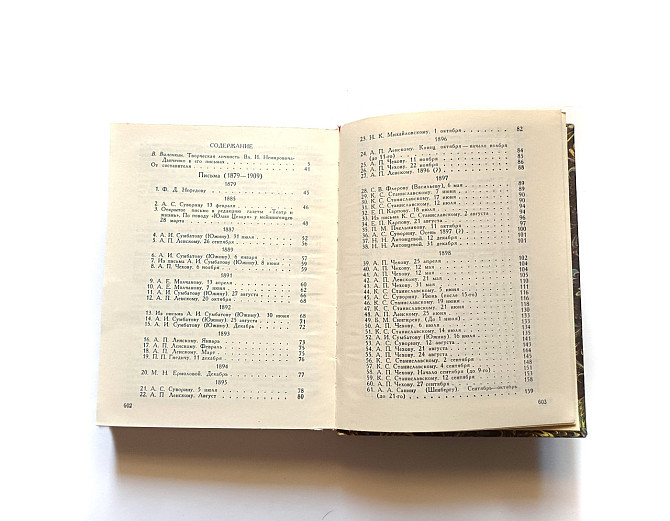 СОДЕРЖАНИЕ
В. Виленкин. Творческая личность Вл. И. Немировича-
Данченко в его письмах . . . 5
От составителя . . . 41
Письма (1879—1909)
1879
1. Ф. Д. Нефедову . . . 45
1885
2. А. С. Суворину 13 февраля . . . 46
3. Открытое письмо в редакцию газеты «Театр и
жизнь». По поводу «Юлия Цезаря» у мейнингенцев
28 марта
1887
4. А. И. Сумбатову (Южину) 31 июля . . . 52
5. А. П. Ленскому. 26 сентября . . . 56
1889
6. А. И. Сумбатову (Южину). 6 января . . . 57
7. Из письма А. И. Сумбатову (Южину). 8 июня
8. А. П. Чехову. 6 ноября
1891
9. А. Е. Молчанову. 13 апреля . . . 60
10. А. Е. Молчанову. 7 июня . . . 62
11. А. И. Сумбатову (Южину). 27 августа . . . 66
12. А. П. Ленскому. 20 октября . . . 68
13. Из письма А. И. Сумбатову (Южину). 30 июня . . . 68
14. А. И. Сумбатову (Южину). 25 августа . . . 71
15. А. И. Сумбатову (Южину). Декабрь . . . 72
1893
16. А. П. Ленскому. Январь . . . 73
17. А. П. Ленскому. Февраль . . . 75
18. А. П. Ленскому. Март . . . 75
19. П. П. Гнедичу. 11 декабря . . . 76
1894
20. М. Н. Ермоловой. Декабрь . . . 77
1895
21. А. С. Суворину. 5 июля . . . 78
22. А. П. Ленскому. Август . . . 80
602
23. Н. К. Михайловскому. 1 октября . . . 82
1896
24. А. П. Ленскому. Конец октября — начало ноября
(до 11-го)
25. А. П. Чехову. 11 ноября
26. А. П. Чехову. 22 ноября
27. А. П. Ленскому. 1896 (?)
1897
28. С. В. Флерову (Васильеву). 6 мая
29. К. С. Станиславскому. 7 июня
30. К. С. Станиславскому. 17 июня
31. К. С. Станиславскому. 12 июля
32. Е. П. Карпову. 18 июля
33. Из письма К. С. Станиславскому. 2 августа
34. Е. П. Карпову. 21 августа
35. П. М. Пчельникову. 11 октября
36. А. С. Суворину. Осень 1897 (?) . . . 100
37. Н. Н. Литовцевой. 12 декабря . . . 101
38. Н. Н. Литовцевой. 31 декабря . . . 101
1898
39. А. П. Чехову. 25 апреля . . . 102
40. А. П. Чехову. 12 мая . . . 104
41. А. П. Чехову. 12 мая
42. А. П. Ленскому. 21 мая
43. А. П. Чехову. 31 мая
44. К. С. Станиславскому. 5 июня
45. А. С. Суворину. Июнь (после 15-го)
46. К. С. Станиславскому. 19 июня
48. А. П. Ленскому. 25 июня
49. Б. М. Снигиреву. (До 1 июля)
50. А. П. Чехову. 6 июля
51. К. С. Станиславскому. 14 июля
52. А. И. Сумбатову (Южину). 16 июля
53. А. С. Суворину. 12 августа
54. А. П. Чехову. 21 августа
55. А. П. Чехову. 24 августа
57. К. С. Станиславскому. 4 сентября
58. А. П. Чехову. Начало сентября (до 9-го)
59. К. С. Станиславскому. 12 сентября
60. А. П. Чехову. 27 сентября
61. А. А. Санину (Шенбергу). Сентябрь—октябрь
(до 21-го) . . . 159
603